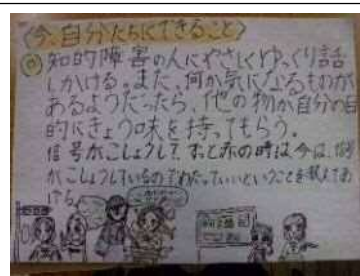 <今、自分たちにできること>
知的障害の人にやさしくゆっくり話
しかける。また、何か気になるものが
あるようだったら、他の物か自分の目
的にきょう味を持ってもらう。
信号がこしょうして、ずっと赤の時は今は、信号
がこしょうしているの
わたっていいということを教えてあ
げる。